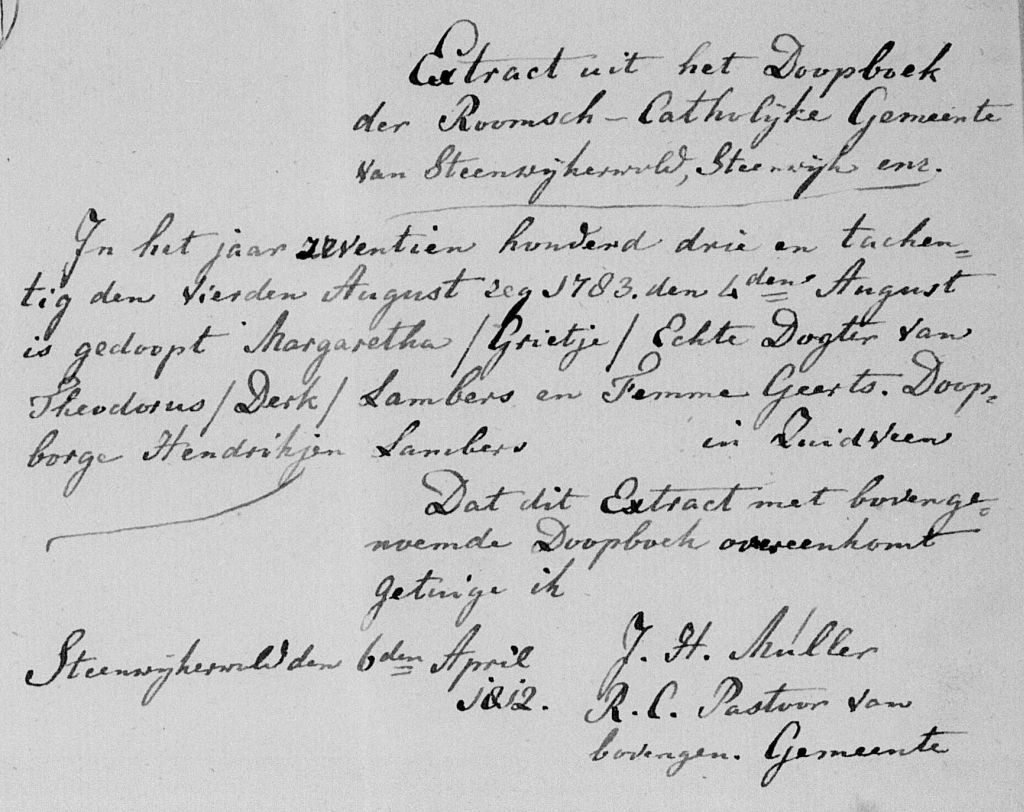 Extract uit het Doopboek
der Roomsch - Catholijke Gemeente
van Steenwijkerwold, Steenwijk enz.
In het jaar zeventien honderd drie en tachen=
tig den vierden August zeg 1783. den 4den August
is gedoopt Margaretha /Grietje/ Echte Dogter van
Theodorus /Derk/ Lambers en Femme Geerts. Doop=
borge Hendrikjen Lambers in Zuidveen
Dat dit Extract met bovenge=
noemde Doopboek overeenkomt
getuige ik
Steenwijkerwold den 6den April
1812.
J. H. Müller
R. C. Pastoor van
bovengen. Gemeente